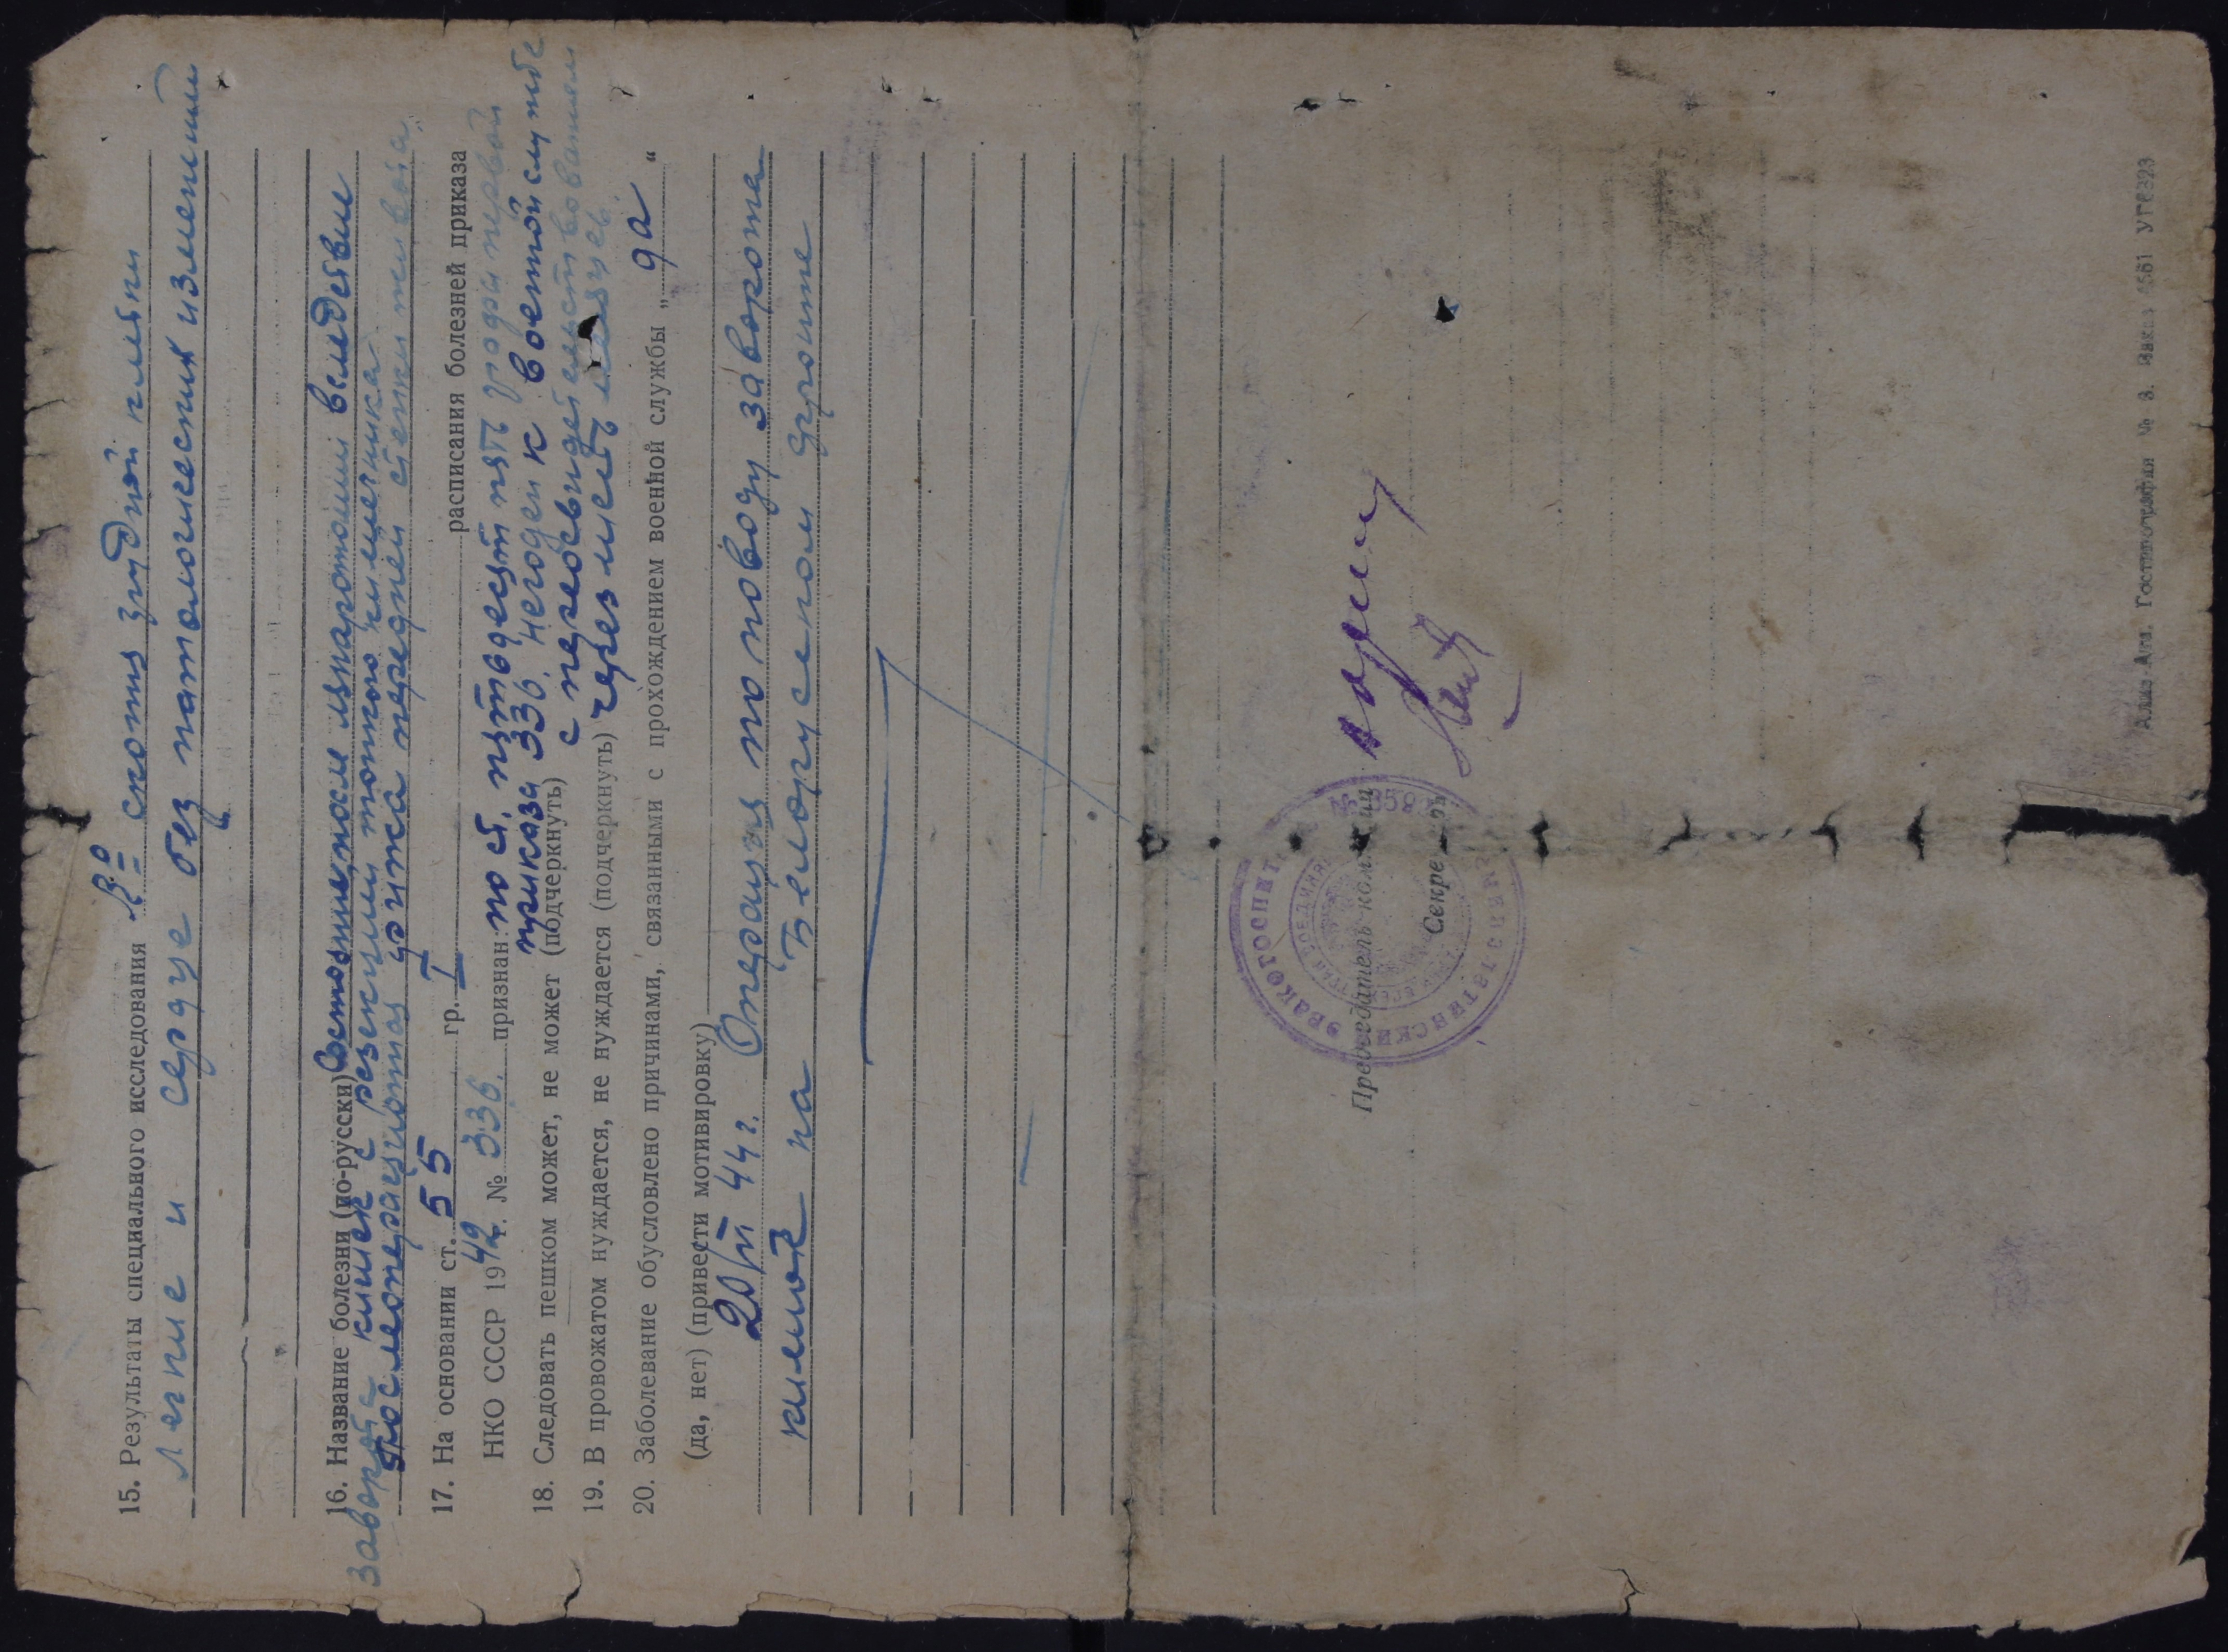 15. Результаты специального исследования R-о скопия грудной клетки
Легкие и сердце без патологических изменений
16. Название болезни (по-русски) Состояние после лапаротомии вследствие
заворота кишек с резекцией тонкого кишечника
Послеоперационная грыжа передней стенки живота
17. На основании ст. 55 гр. I расписания болезней приказа
НКО СССР 1942 г. № 336. признан: по ст. пятьдесят пять графа первой
приказа 336. негоден к военной службе
18. Следовать пешком может, не может (подчеркнуть) с переосвидетельствованием
19. В провожатом нуждается, не нуждается (подчеркнуть) через шесть месяцев.
20. Заболевание обусловлено причинами, связанными с прохождением военной службы „да“
(да, нет) (привести мотивировку)
20/VI 44 г. Операция по поводу заворота
кишок на Белорусском фронте
ЭВАКОГОСПИТ
Председатель комиссии
Секретарь
Алма-Ата. Гостипография № 3. Заказ 1561 УГ6323